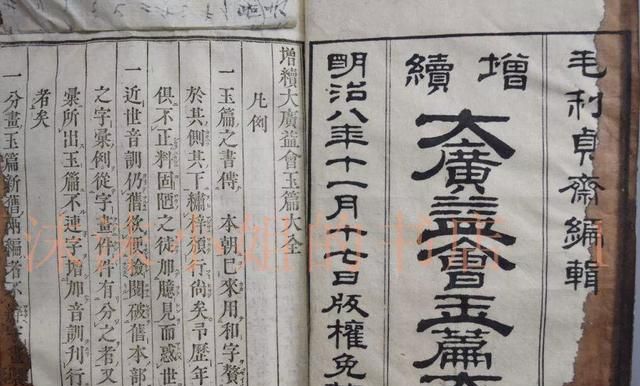 毛利貞齋編輯
增續
大廣益會玉篇大
明治八年十一月十七日版權免許
增續大廣益會玉篇大全
凡例
一玉篇之書傳本朝已來用和字贅
於其側其下種梓頒行尚矣弓歷年
俱不正料固陋之徒加臆見而惑世
一近世音訓仍舊欲便撿閱破舊本部
之字彙例從字畫件件有分之者又
彙所出玉篇不速字增加音訓刊行
者矣
一分畫玉篇新舊兩編者不
沫沫小姐的书店